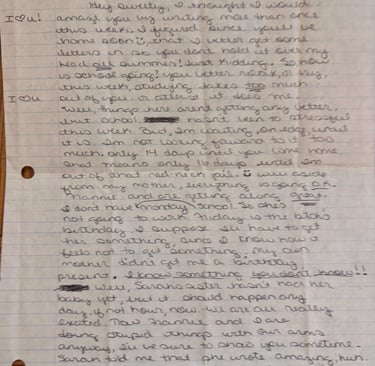 Hey Sweety, I thought I would
I ♡ u! amaze you by writing more than once
this week. I figured since you'll be
home soon, that I better get some
letters in so you don't hold it over my
head all summer! Just kidding. So how
is school going? you better relax,
this week, studying takes too much
I ♡ u out of you. at least it does me.
Well, things here aren't getting any better,
but school hasn't been to stressful
this week. But, I'm waiting,
it is. I'm not looking forward to it too
much. only 14 days until you come home
and that means only 16 days until I'm
out of that red neck jail. well aside
from my mother, everything is going o.k.
and are getting along great.
I don't have monday school. So she's
not going to work Friday is the bitch's
birthday, I suppose I'll have to get
her something, since I know how it
feels not to get something, my own
mother didn't get me a birthday
present. I know something you don't know!!
Well, Sarah's sister hasn't had her
baby yet, but it should happen any
day, if not hours, now. we are all really
excited. Now and I are
doing stupid things with our arms
anyway, I'll be sure to show you sometime.
Sarah told me that she wrote, amazing, huh.